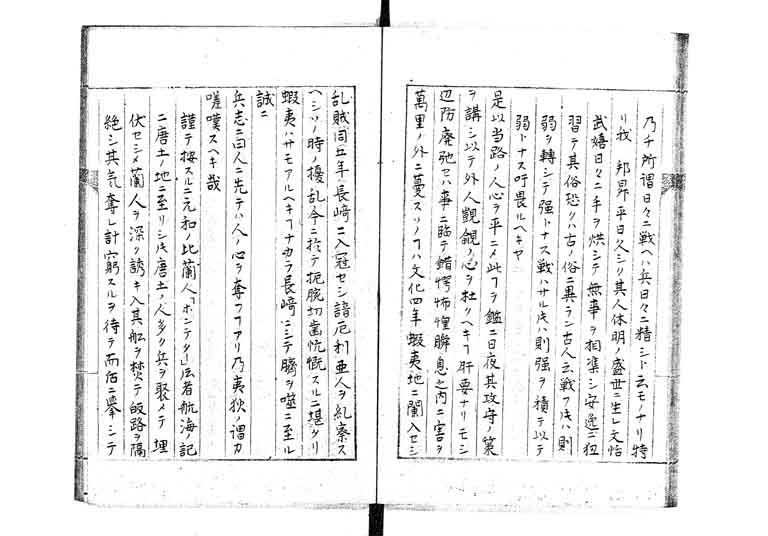 乃チ所謂日々ニ戦ヘハ兵日々ニ精シト云モノナリ特
リ我 邦昇平日久シク其人休明ノ盛世ニ生レ文恬
武嬉日々ニ手ヲ烘シテ無事ヲ相凖シ安逸ニ狃
習テ其俗恐クハ古ノ俗ニ異ラン古人云戦フ𪜈ハ則
弱ヲ轉シテ强トナス戦ハサル𪜈ハ則强ヲ積テ以テ
弱トナス吁畏ルヘキヤ
是以当路ノ人心ヲ平ニメ此ヿヲ鑑ニ日夜其攻守ノ策
ヲ講シ以テ外人覬覦ノ心ヲ杜クヘキヿ肝要ナリモシ
辺防廃弛セハ事ニ臨テ錯愕怖惶瞬息之内ニ害ヲ
萬里ノ外ニ蔓スソノヿハ文化四年蝦夷地ニ闌入セシ
乱賊同五年長﨑ニ入冠セシ諳厄利亜人ヲ糺察ス
ヘシソノ時ノ擾乱今ニ於テ扼腕切歯忼慨スルニ堪タリ
蝦夷ハサモアルヘキヿナカラ長﨑ニシテ臍ヲ噬ニ至ル
誠ニ
兵志ニ曰人ニ先テハ人ノ心ヲ奪フヿアリ乃夷狄ノ謂カ
嗟嘆スヘキ哉
謹テ按スルニ元和ノ比蘭人「ボンテクー」云者航海ノ記
ニ唐土ノ地ニ至リシ𪜈唐土ノ人多ク兵ヲ聚メテ埋
伏セシメ蘭人ヲ深ク誘キ入其舩ヲ焚テ皈路ヲ隔
絶シ其気奪レ計窮スルヲ待テ而后ニ挙シテ